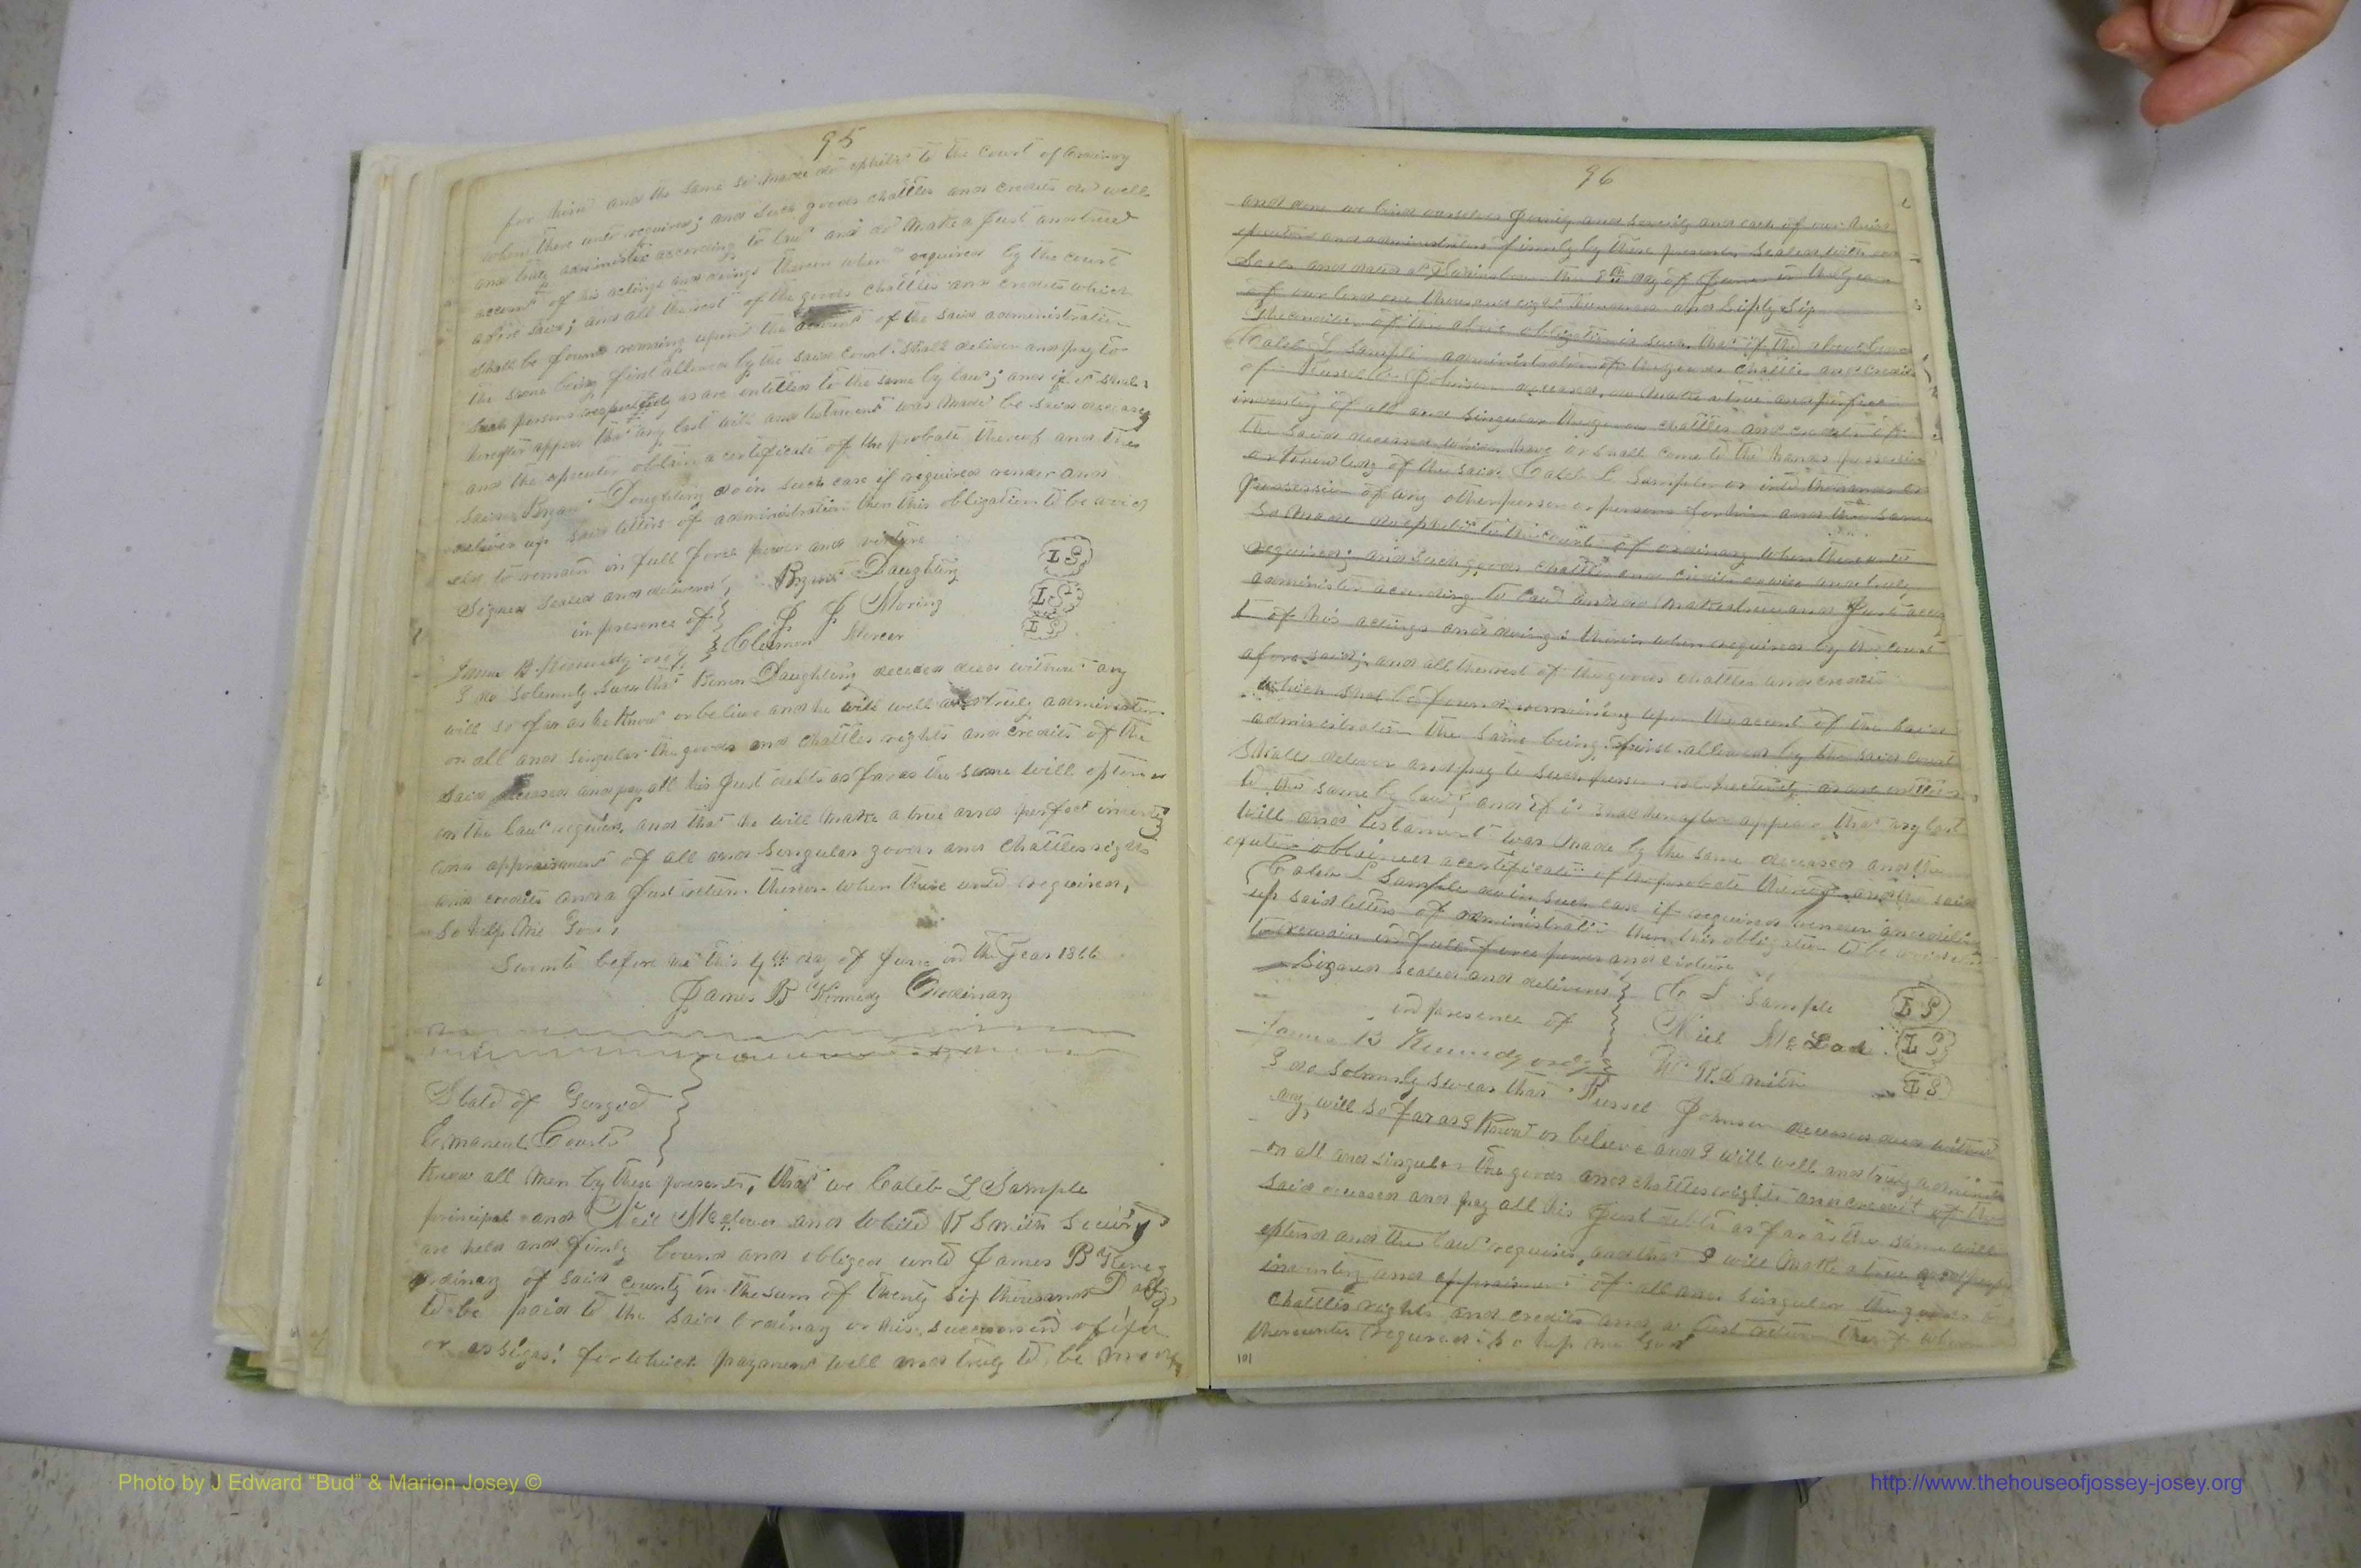 95
for him and the same so made do exhibit to the Court of Ordinary
when there unto required; and such goods chattles and credits do well
and truly administer according to law and do make a Just and true
account of his actings and doings therein when required by the court
afore said; and all the rest of the goods chattles and credits which
shall be found remaing upon the account of the said administration
the same being first allowed by the said Court shall deliver and pay to
such persons respectfully as are entitled to the same by law; and if it shall
hereafter appear that any last will and testament was made be said deceased
and the executor obtain a certificate of the probate thereof and the
said Bryant Doughtiny do in such case if required render and
deliver up said letters of administration then this obligation to be void
else to remain in full force power and virtue
Signed sealed and delivered Bryant Daughtiny LS
in presence of J J Moring LS
James B. Kennedy ordy Clemon Mercer LS
I do solemnly swear that Daughtiny deceded died without any
will so far as he know or believe and he will well and truly administer
on all and singular the goods and chattles rights and credits of the
said deceased and pay all his Just debts as far as the same will extend
on the law requires and that he will make a true and perfect inventy
and appraisment of all and singular goods and chattles rights
and credits and a Just return thereon when there unto required,
So help me God,
Swornto before me this 4th day of June in the year 1866
James B Kennedy Ordinary
State of Gorgia
Emanuel County
Know all men by these presents, that we Caleb L Sample
principal and Neil and White R Smith Security
are held and firmly bound and obliged unto James B
ordinary of said county in the sum of twenty six thousand
to be paid to the said ordinary or his successors in
or assigns: for which payment well and truly to be made
96
and done we bind ourselves Jointly and severily and each of our heirs
executors and administrators firmly by these presents Sealed with our
Seals and dated at the day of June in the year
of our lord one thousand eight hundred and Sixty Six
The condition of the above obligation is such that if the above bound
Caleb L Sample administration of the goods Chattles and credits
of Russel Johnson deceased, do make a true and perfect
inventory of all and singular the goods chattles and credits of
the said deceased which have or shall come to the hands possession
or knowledg of the said Caleb L Sample or into the hands or
possession of any other person or persons for him and the same
so made do exhibit to the court of ordinary when there unto
required; and such goods chattles and credits do well and truly
administer according to law and do make a true and Just accou
t of his actings and doings therein when required by the court
afore said; and all the rest of the goods chattles and credits
which shal be found remaining upon the acount of the said
administration the same being first allowed by the said court
Shall deliver and pay to such persons respectively as are entitled
to the same by law; and if it shal hereafter appear that any last
will and testament was made by the same deceased and the
exutor obtained a certificate of the probate thereof and the said
Caleb L Sample do in such case if required render and deliver
up said letters of administration then this obligation to be void else
to remain in full force power and virture
Signed Sealed and delivered C L Sample LS
in presence of Neil LS
James B Kennedy ordy W R Smith LS
I do solemnly swear that Russel Johnson deceased died without
any will so far as I know or believe and I will well and truly administer
on all and singular the goods and chattles rights and credit of the
said deceased and pay all his Just debts as far as the same will
extend and the law requires, and that I will make a true and perfect
inventory and of all and singular the goods
chattles rights and credits and a Just return when
thereunto required: So help me God
101
Photo by J Edward “Bud” & Marion Josey ©
http://www.thehouseofjossey-josey.org